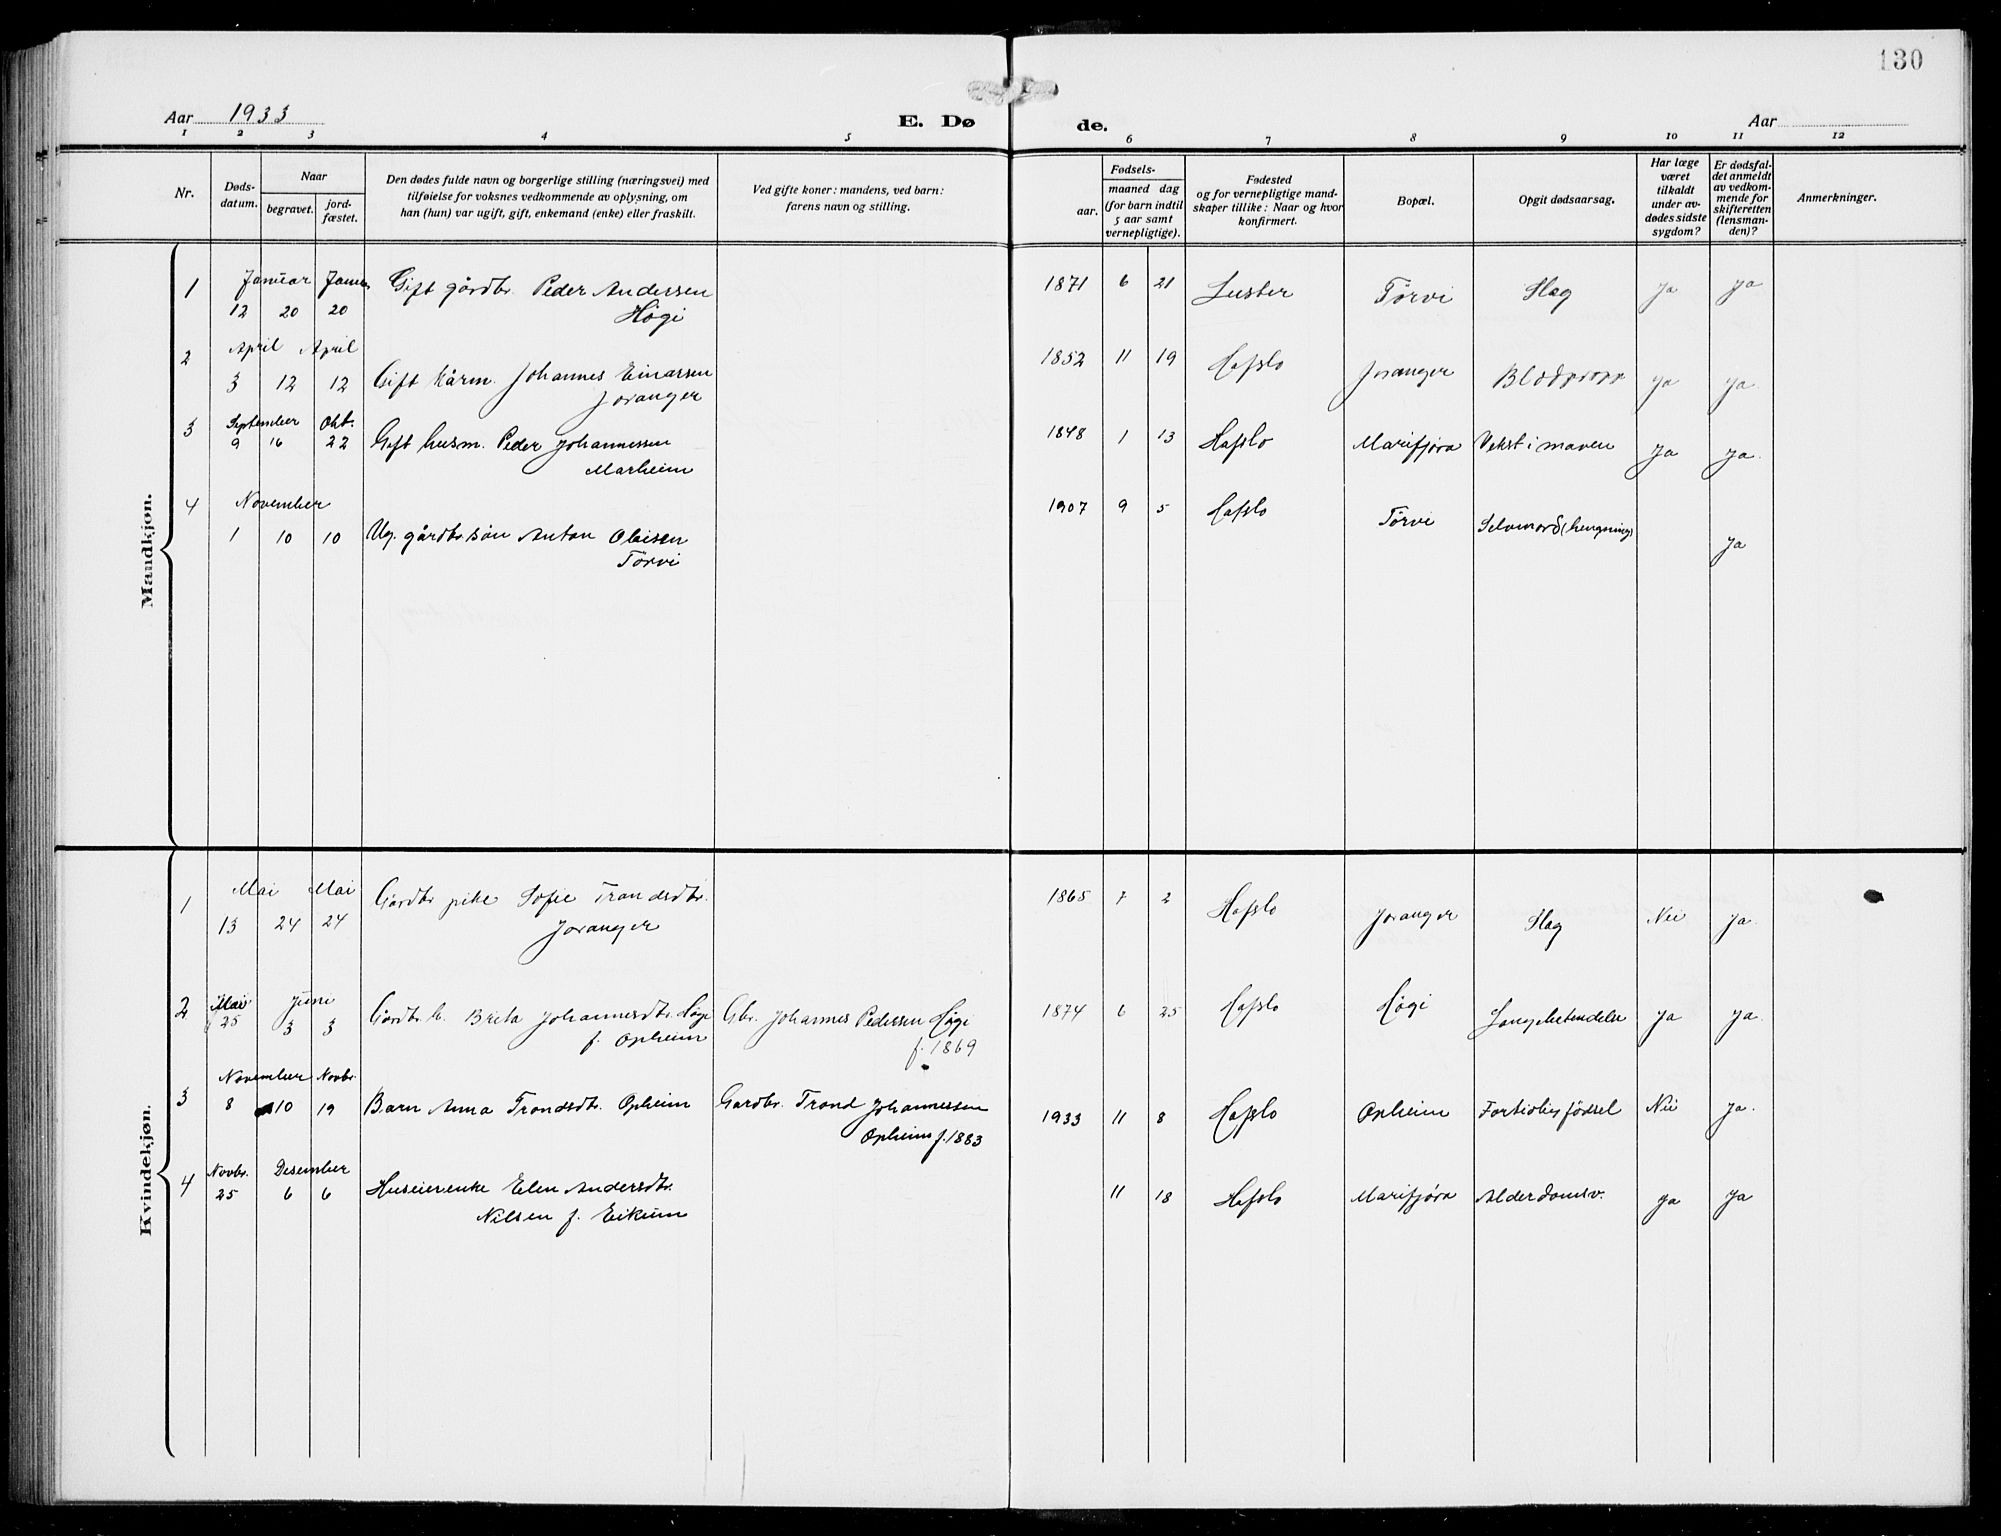 130
Aar 1933
E. Dø
de.
Aar
1 2 3 4 5 6 7 8 9 10 11 12
Nr.
Døds-
datum.
Naar
begravet.
jord-
fæstet.
Den dødes fulde navn og borgerlige stilling (næringsvei) med
tilføielse for voksnes vedkommende av oplysning, om
han (hun) var ugift, gift, enkemand (enke) eller fraskilt.
Ved gifte koner: mandens, ved barn:
farens navn og stilling.
Fødsels-
aar.
maaned dag
(for barn indtil
5 aar samt
vernepligtige).
Fødested
og for vernepligtige mand-
skaper tillike: Naar og hvor
konfirmert.
Bopæl.
Opgit dødsaarsag.
Har læge
været
tilkaldt
under av-
dødes sidste
sygdom?
Er dødsfal-
det anmeldt
av vedkom-
mende for
skifteretten
(lensman-
den)?
Anmerkninger.
Mandkjøn.
1 Januar Januar Gift gårdbr. Peder Andersen 1871 6 21 Luster Törvi Slag Ja Ja
12 20 20 Høgi
2 April April 1852 11 19 Hafslo Joranger Blodpropp Ja Ja.
3 12 12 Gift kårm. Johannes Einarsen
Joranger
3 September Okt. 1848 1 13 Hafslo Marifjøra Vekst i maven Ja Ja.
9 16 22 Gift husm. Peder Johannessen
Marheim
4 November 1907 9 5 Hafslo Törvi Selvmord (hengning) Ja
1 10 10 Ug. gårdbr. sön Anton Olsisen
Törvi
Kvindekjøn.
1 Mai Mai Gårdbr pike Sofie Trondsdtr. 1865 7 2 Hafslo Joranger Slag Nei Ja.
13 24 24 Joranger
2 Mai Juni
25 3 3 Gårdbr. k. Brita Johannesdtr. Høgi Gbr. Johannes Pedersen Høgi 1874 6 25 Hafslo Høgi Lungebetendelse Ja Ja.
f. Opheim f. 1869
3 November Novbr.
8 10 19 Barn Anna Trondsdtr. Opheim Gardbr. Trond Johannessen 1933 11 8 Hafslo Opheim Fortidlig födsel Nei Ja.
Opheim f. 1883
4 Novbr. Desember
25 6 6 Huseierenke Elen Andersdtr. 11 18 Hafslo Marifjøra Alderdomsv. Ja Ja
Nilsen f. Eikum